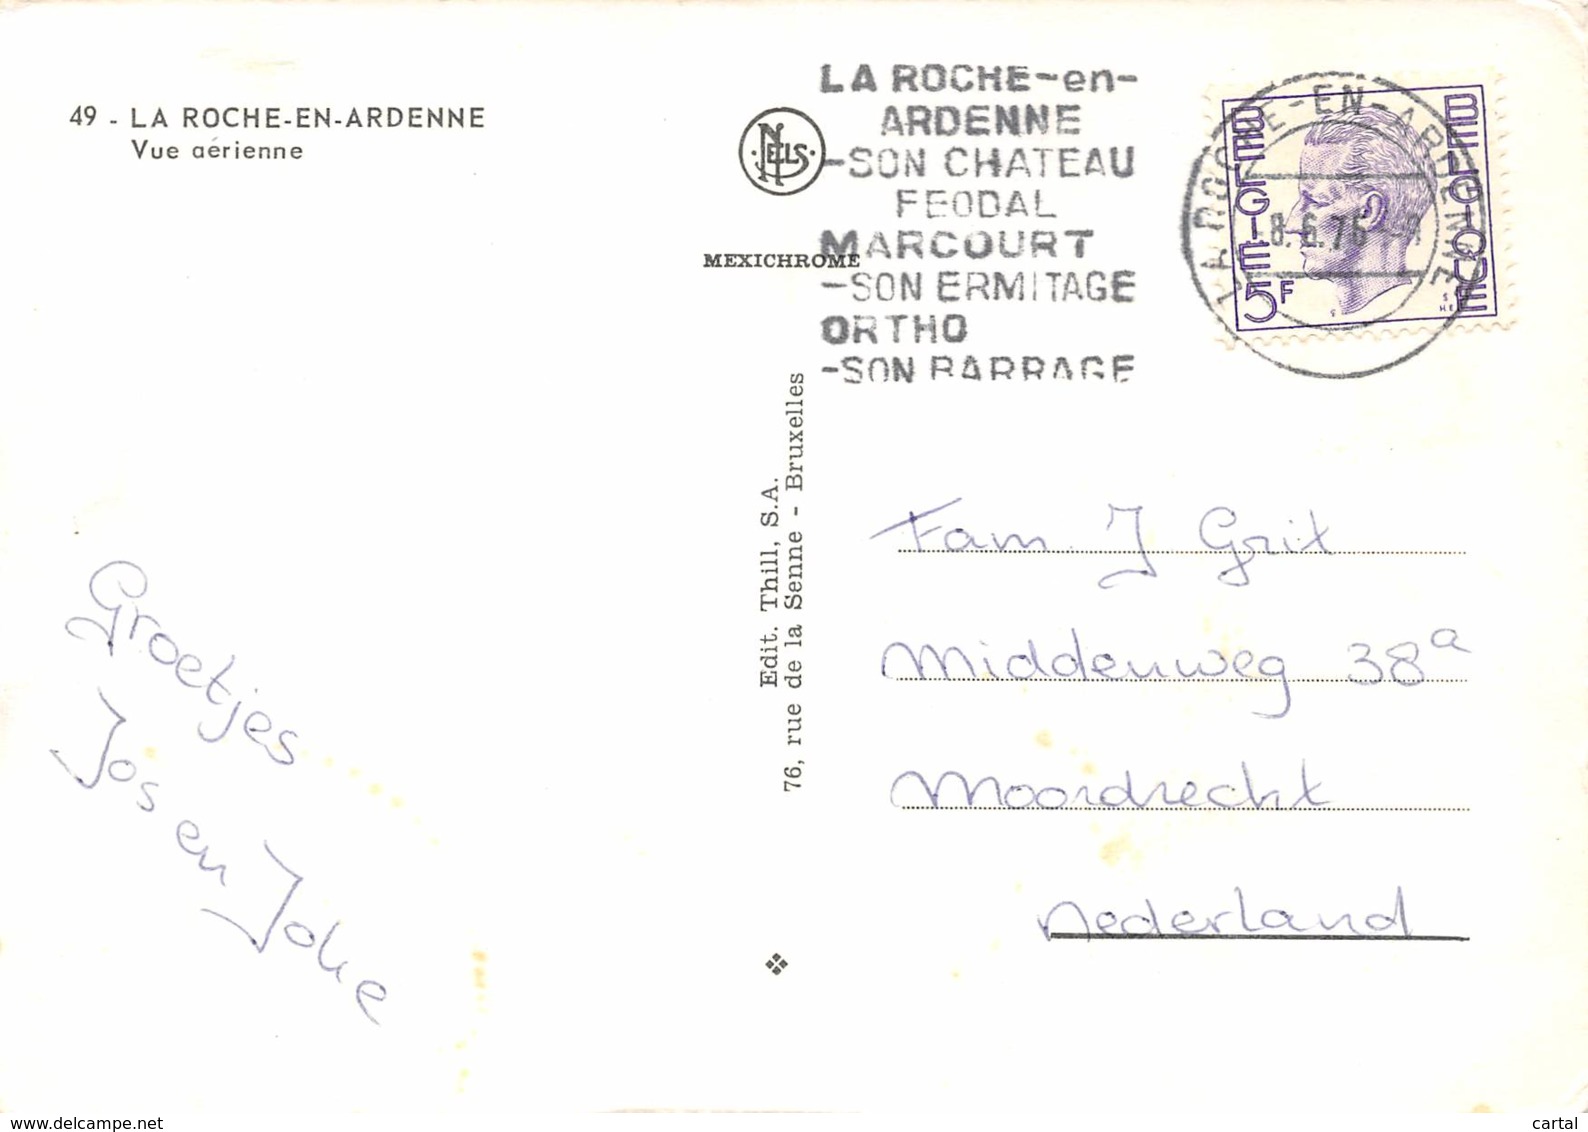 49 - LA ROCHE-EN-ARDENNE
Vue aérienne
NELS
MEXICHROME
LA ROCHE-en-
ARDENNE
-SON CHATEAU
FEODAL
MARCOURT
-SON ERMITAGE
ORTHO
-SON BARRAGE
LA ROCHE-EN-ARDENNE
8.6.76
BELGIE
BELGIQUE
5F
Edit. Thill, S.A.
76, rue de la Senne - Bruxelles
Groetjes
Jos en Joke
Fam J Grit
Middenweg 38a
Moordrecht
Nederland
www.delcampe.net
cartal